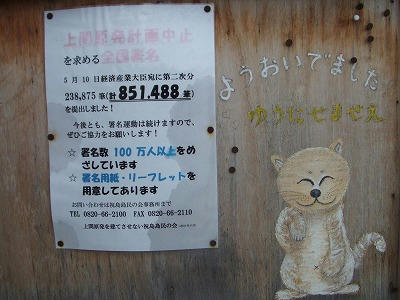 上関原発計画中止
を求める全国署名
5月10日経済産業大臣宛に第二次分
238,875筆(計851,488筆)
を提出しました!
今後とも、署名運動は続けますので、
ぜひご協力をお願いします!
☆ 署名数 100 万人以上をめ
ざしています
☆ 署名用紙・リーフレットを
用意してあります
お問い合わせは祝島島民の会事務所まで
TEL 0820-66-2100 FAX 0820-66-2110
上関原発を建てさせない祝島島民の会
ようおいでました
ゆうにせませえ